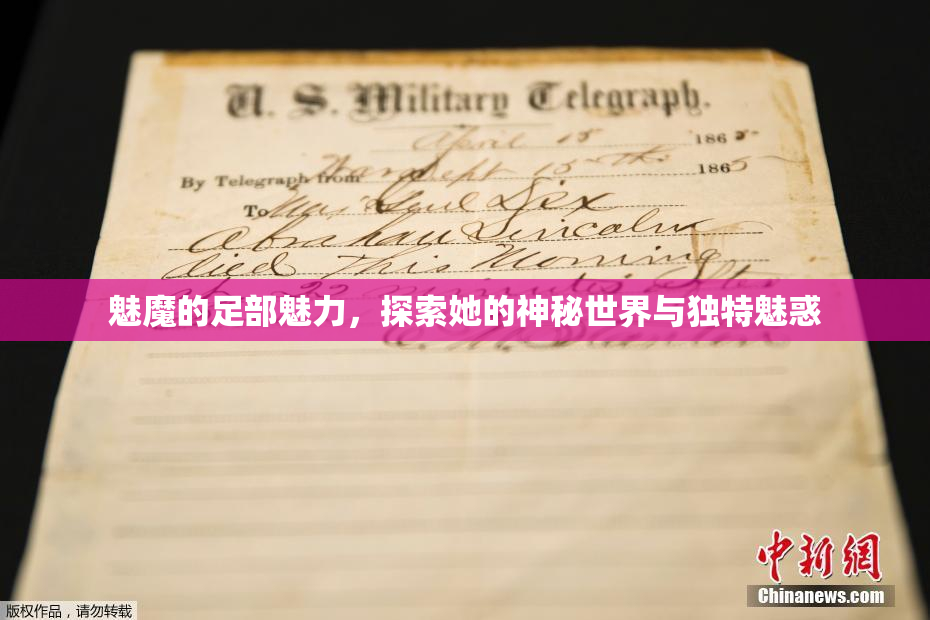 U. S. Military Telegraph.
April 15 1865
By Telegraph from War Dept 15th 1865
To Maj Genl Dix
Abraham Lincoln
died This Morning
at 22 minutes after
魅魔的足部魅力，探索她的神秘世界与独特魅惑
E. M. Stanton
中新网
Chinanews.com
版权作品，请勿转载